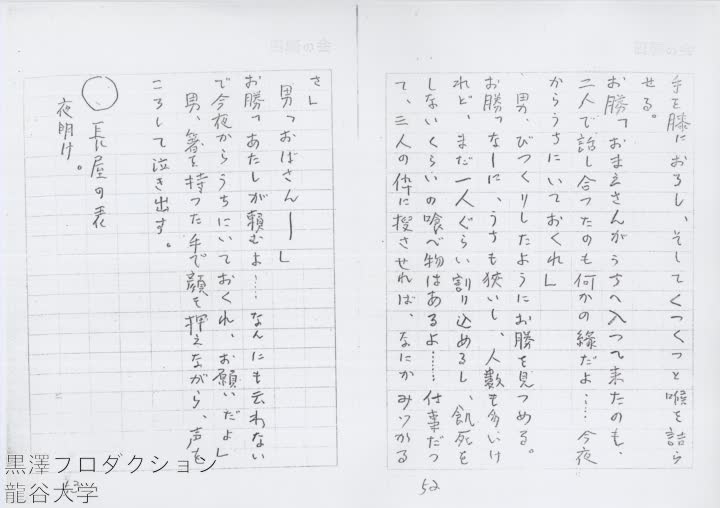 手を膝におろし、そしてくつくつと喉を詰ら
せる。
お勝「おまえさんがうちへ入つて来たのも、
二人で話し合つたのも何かの縁だよ……今夜
からうちにいておくれ」
男、びつくりしたようにお勝を見つめる。
お勝「なーに、うちも狭いし、人数も多いけ
れど、まだ一人ぐらい割り込めるし、飢死を
しないくらいの喰べ物はあるよ……仕事だつ
て、三人の伜に捜させれば、なにかみつかる
52
さ」
男「おばさんー」
お勝「あたしが頼むよ……なんにも云わない
で今夜からうちにいておくれ、お願いだよ」
男、箸を持つた手で顔を押えながら、声を
ころして泣き出す。
○ 長屋の表
夜明け。
53
黒澤プロダクション
龍谷大学